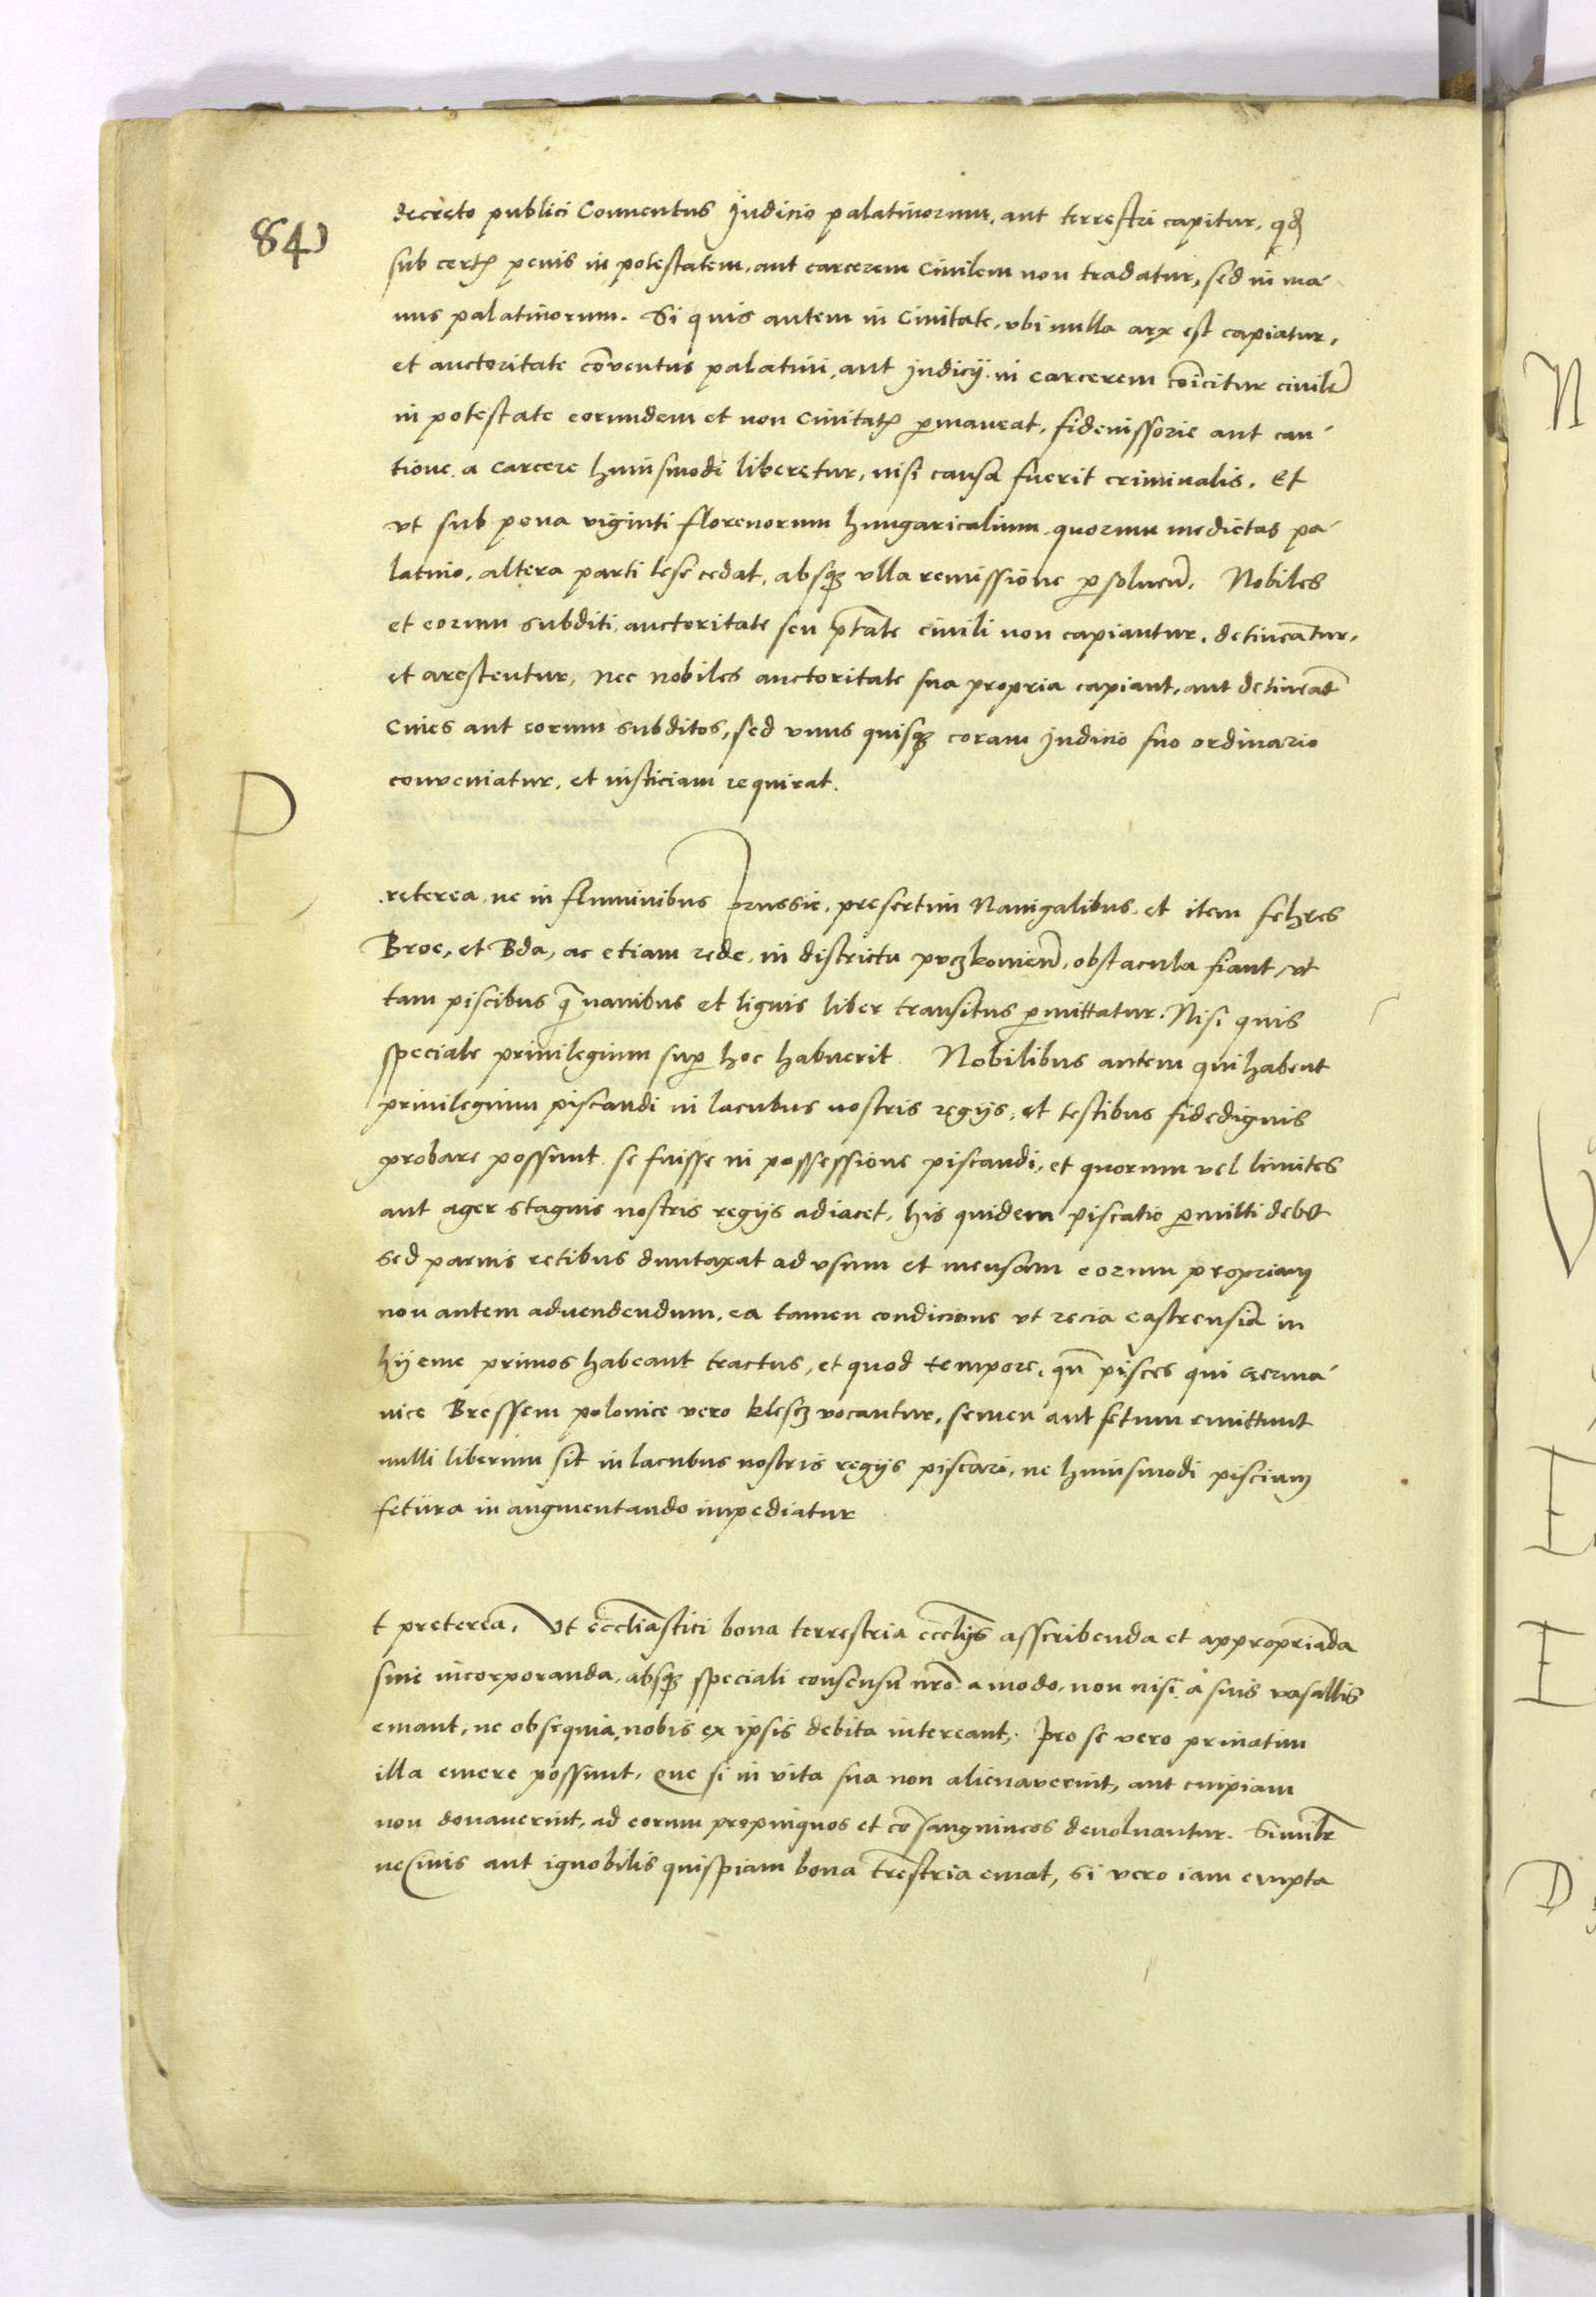 84)
decreto publici Conuentus Judicio palatinorum, aut terrestri capitur, qd
sub certis penis in potestatem, aut carcerem Ciuilem non tradatur, sed in ma-
nus palatinorum. Si quis autem in Ciuitate, vbi nulla arx est capiatur,
et auctoritate cōuentus palatini, aut Judicij in carcerem cōicitur ciuilē
in potestate eorundem et non Ciuitatis p̱maneat, fideiussorie aut cau-
tione a carcere huiusmodi liberetur, nisi causa fuerit criminalis. Et
vt sub pena viginti florenorum hungaricalium quorum medietas pa-
latino, altera parti lese cedat, absq3 vlla remissione p̱soluen̄. Nobiles
et eorum subditi auctoritate seu p̄tate ciuili non capiantur, detineātur,
et arestentur, nec nobiles auctoritate sua propria capiant, aut detineāt
Ciues aut eorum subditos, sed vnus quisq3 coram Judicio suo ordinario
conueniatur, et iusticiam requirat.
P
reterea ne in fluminibus Prussie, presertim Nauigalibus et item fehres
Broe, et Bda, ac etiam rede, in districtu puczkouien̄, obstacula fiant, vt
tam piscibus q̄ nauibus et lignis liber transitus p̱mittatur. Nisi quis
speciale priuilegium sup̱ hoc habuerit. Nobilibus autem qui habent
priuilegium piscandi in lacubus nostris regijs, et testibus fidedignis
probare possunt se fuisse in possessione piscandi, et quorum vel limites
aut ager stagnis nostris regijs adiacet, his quidem piscatio p̱mitti debet
sed paruis retibus duntaxat ad vsum et mensam eorum propriam
non autem aduendendum, ea tamen condicione vt recia castrensia in
hijeme primos habeant tractus, et quod tempore, qn̄ pisces qui Germa-
nice Bressem polonice vero klescz vocantur, semen aut fetum emittunt
nulli liberum sit in lacubus nostris regijs piscari, ne huiusmodi piscium
fetura in augmentando impediatur
E
t preterea, Vt eccl̄iastici bona terrestria eccl̄ijs asscribenda et appropriāda
siue incorporanda, absq3 speciali consensu n̄ro a modo, non nisi a suis vasallis
emant, ne obsequia nobis ex ipsis debita intereant, Pro se vero priuatim
illa emere possunt, que si in vita sua non alienauerint, aut cuipiam
non donauerint, ad eorum propinquos et cōsanguineos deuoluantur. Simil̄r
ne Ciuis aut ignobilis quispiam bona t̄restria emat, si vero iam empta